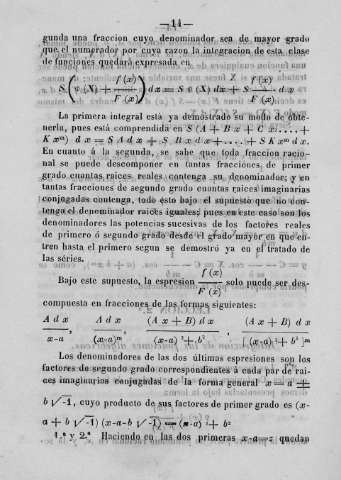 —14—
gunda una fraccion cuyo denominador sea de mayor grado
que el numerador por cuya razon la integracion de esta clase
de funciones quedará expresada en
S ( φ (X) + f (x) / F (x) ) d x = S φ (X) dx + S f (x) / F (x) . d x
La primera integral está ya demostrado su modo de obte-
nerla, pues está comprendida en S (A + B x + C x....+
K xᵐ) d x = S A d x + S B x d x +....+ S K xᵐ d x.
En cuanto á la segunda, se sabe que toda fraccion racio-
nal se puede descomponer en tantas fracciones de primer
grado cuantas raices reales contenga su denominador; y en
tantas fracciones de segundo grado cuantas raices imaginarias
conjugadas contenga, todo esto bajo el supuesto que no con-
tenga el denominador raices iguales; pues en este caso son los
denominadores las potencias sucesivas de los factores reales
de primero ó segundo grado desde el grado mayor en que en-
tren hasta el primero segun se demostró ya en el tratado de
las séries.
Bajo este supuesto, la espresion f (x) / F (x) solo puede ser des-
compuesta en fracciones de las formas siguientes:
A d x / x-a , A d x / (x-a)ᵐ , (A x + B) d x / (x-a) ²+ b² , (A x + B) d x / [ (x-a) ²+ b² ]ᵐ
Los denominadores de las dos últimas espresiones son los
factores de segundo grado correspondientes á cada par de rai-
ces imaginarias conjugadas de la forma general x = a ±
b √-1, cuyo producto de sus factores de primer grado es (x-
a + b √-1) (x-a-b √-1) = (x-a) ²+ b²
1.ª y 2.ª Haciendo en las dos primeras x-a=z quedan